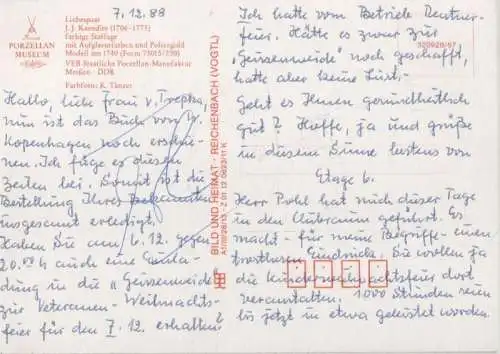 7.12.88
PORZELLAN
MUSEUM
Liebespaar
J. J. Kaendler (1706-1775)
Farbige Staffage
mit Aufglasurfarben und Poliergold
Modell um 1740 (Form 73015/230)
VEB Staatliche Porzellan-Manufaktur
Meißen · DDR
Farbfoto: K. Tänzer
Hallo, liebe Frau v. Trepka,
nun ist das Buch von W.
Kopenhagen noch erschie-
nen. Ich füge es diesen
Zeilen bei. Somit ist die
Bestellung Ihres
insgesamt erledigt.
Haben Sie am 6.12. gegen
20.00 h auch eine Einla-
dung in die "Geissenweide"
zur Veteranen-Weihnachts-
feier für den 7.12. erhalten?
BILD UND HEIMAT · REICHENBACH (VOGTL)
Ich hatte vom Betriebe Rentner-
feier. Hätte es zwar zur
"Geissenweide" noch geschafft,
320928/87
hatte aber keine Lust.
Geht es Ihnen gesundheitlich
gut? Hoffe, ja und grüße
in diesem Sinne bestens von
Etage 6.
Herr Pohl hat mich dieser Tage
in den Clubraum geführt. Es
macht - für meine Begriffe - einen
Eindruck. Sie wollen ja
die Kinderweihnachtsfeier dort
veranstalten. 1000 Stunden seien
bis jetzt in etwa geleistet worden.